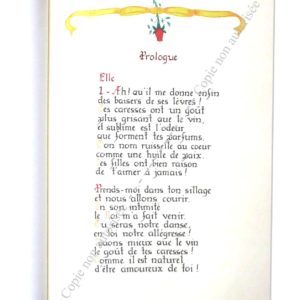 Prologue
Elle
1 - Ah! qu'il me donne enfin
des baisers de ses lèvres!
Tes caresses ont un goût
plus grisant que le vin,
et sublime est l'odeur
que forment tes parfums.
Ton nom ruisselle au coeur
comme une huile de paix.
Les filles ont bien raison
de t'aimer à jamais!
Prends-moi dans ton sillage
et nous allons courir.
En son intimité
le Roi m'a fait venir.
Tu seras notre danse,
en toi notre allégresse!
Disons mieux que le vin
le goût de tes caresses!
Comme il est naturel
d'être amoureux de toi!
Copie non autorisée
Copie non autorisée